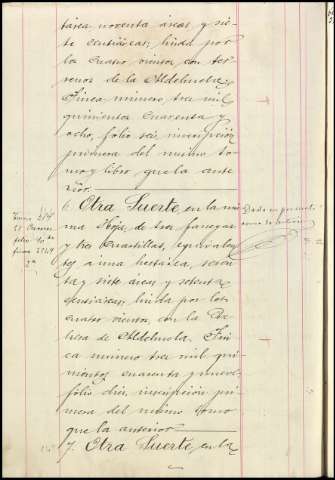 tarea noventa áreas y sie-
te centiáreas; linda por
los cuatro vientos con ter-
renos de la Aldehuela.
Finca número tres mil
quinientos cuarenta y
ocho, folio seis, inscripción
primera del mismo to-
mo y libro que la ante-
rior.
6. Otra Suerte, en la mis-
ma Hoja, de tres fanegas
y tres Cuartillas, equivalen-
tes á una hectárea, seten-
ta y siete áreas y setenta
centiáreas; linda por los
cuatro vientos, con la De-
hesa de Aldehuela. Fin-
ca número tres mil qui-
nientos cuarenta y nueve
folio diez, inscripción pri-
mera del mismo tomo
que la anterior.
7. Otra Suerte, en la
Tomo 214
folio
finca
2ª